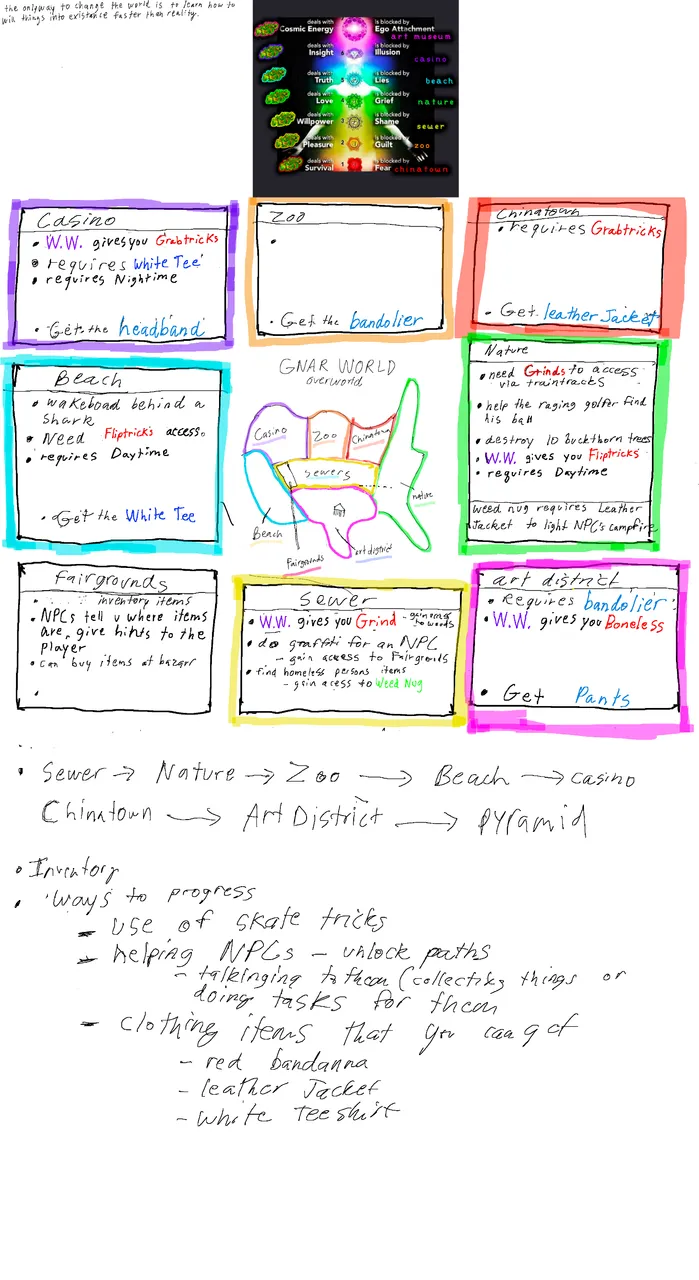 the only way to change the world is to learn how to
win things into existance faster than reality.
deals with
Cosmic Energy
is blocked by
Ego Attachment
art museum
deals with
Insight
6
is blocked by
Illusion
casino
deals with
Truth
is blocked by
Lies
beach
deals with
Love
4
is blocked by
Grief
nature
deals with
Willpower
3
is blocked by
Shame
sewer
deals with
Pleasure
2
is blocked by
Guilt
zoo
deals with
Survival
1
is blocked by
Fear
chinatown
Casino
• W.W. gives you Grabtricks
• requires White Tee
• requires Nightime
• Get the headband
Zoo
•
• Get the bandolier
Chinatown
• requires Grabtricks
• Get leather Jacket
Beach
• wakeboad behind a
shark
• Need Fliptricks access.
• requires Daytime
• Get the White Tee
GNAR WORLD
overworld
Casino
Zoo
Chinatown
sewers
nature
Beach
Fairgrounds
art district
Nature
• need Grinds to access
via traintracks
• help the raging golfer find
his ball
• destroy 10 buckthorn trees
• W.W. gives you Fliptricks
• requires Daytime
weed nug requires Leather
Jacket to light NPC's campfire
Fairgrounds
inventory items
• NPCs tell u where items
are, give hints to the
player
• can buy items at bazarr
•
Sewer
• W.W. gives you Grind - gain access
to woods
• do graffiti for an NPC
- gain access to Fairgrounds
• find homeless persons items
- gain acess to Weed Nug
art district
• Requires bandolier
• W.W. gives you Boneless
• Get Pants
• Sewer → Nature → Zoo → Beach → casino
Chinatown → Art District → pyramid
• Inventory
• Ways to progress
- use of skate tricks
- helping NPCs - unlock paths
- talkinging to them (collecting things or
doing tasks for them
- clothing items that you can get
- red bandanna
- leather Jacket
- white teeshirt